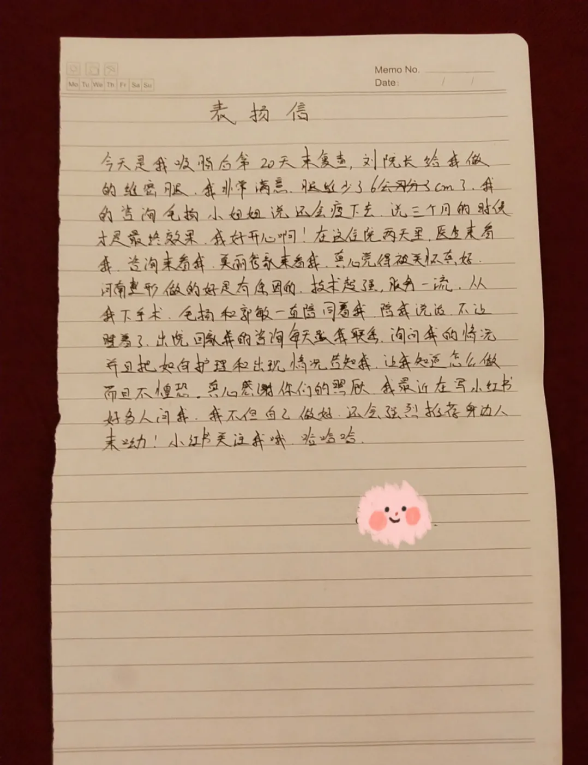 Memo No.
Mo Tu We Th Fr Sa Su
Date: / /
表扬信
今天是我吸脂后第20天来复查,刘院长给我做
的维密腿,我非常满意,腿维少了6cm了,我
的咨询毛扬小姐姐说还会瘦下去,说三个月的时候
才是最终效果,我好开心啊!在这住院两天里,医生来看
我,咨询来看我,美丽管家来看我,真心觉得被关怀真好
河南整形做的好是有原因的,技术超强,服务一流,从
我下手术,毛扬和郭敏一直陪同着我,陪我说话不让
我睡着了,出院回家我的咨询每天跟我联系,询问我的情况
并且把如何护理和出现情况告知我,让我知道怎么做
而且不惶恐,真心感谢你们的照顾,我最近在写小红书
好多人问我,我不但自己做好,还会强烈推荐身边人
来动力!小红书关注我哦 哈哈哈